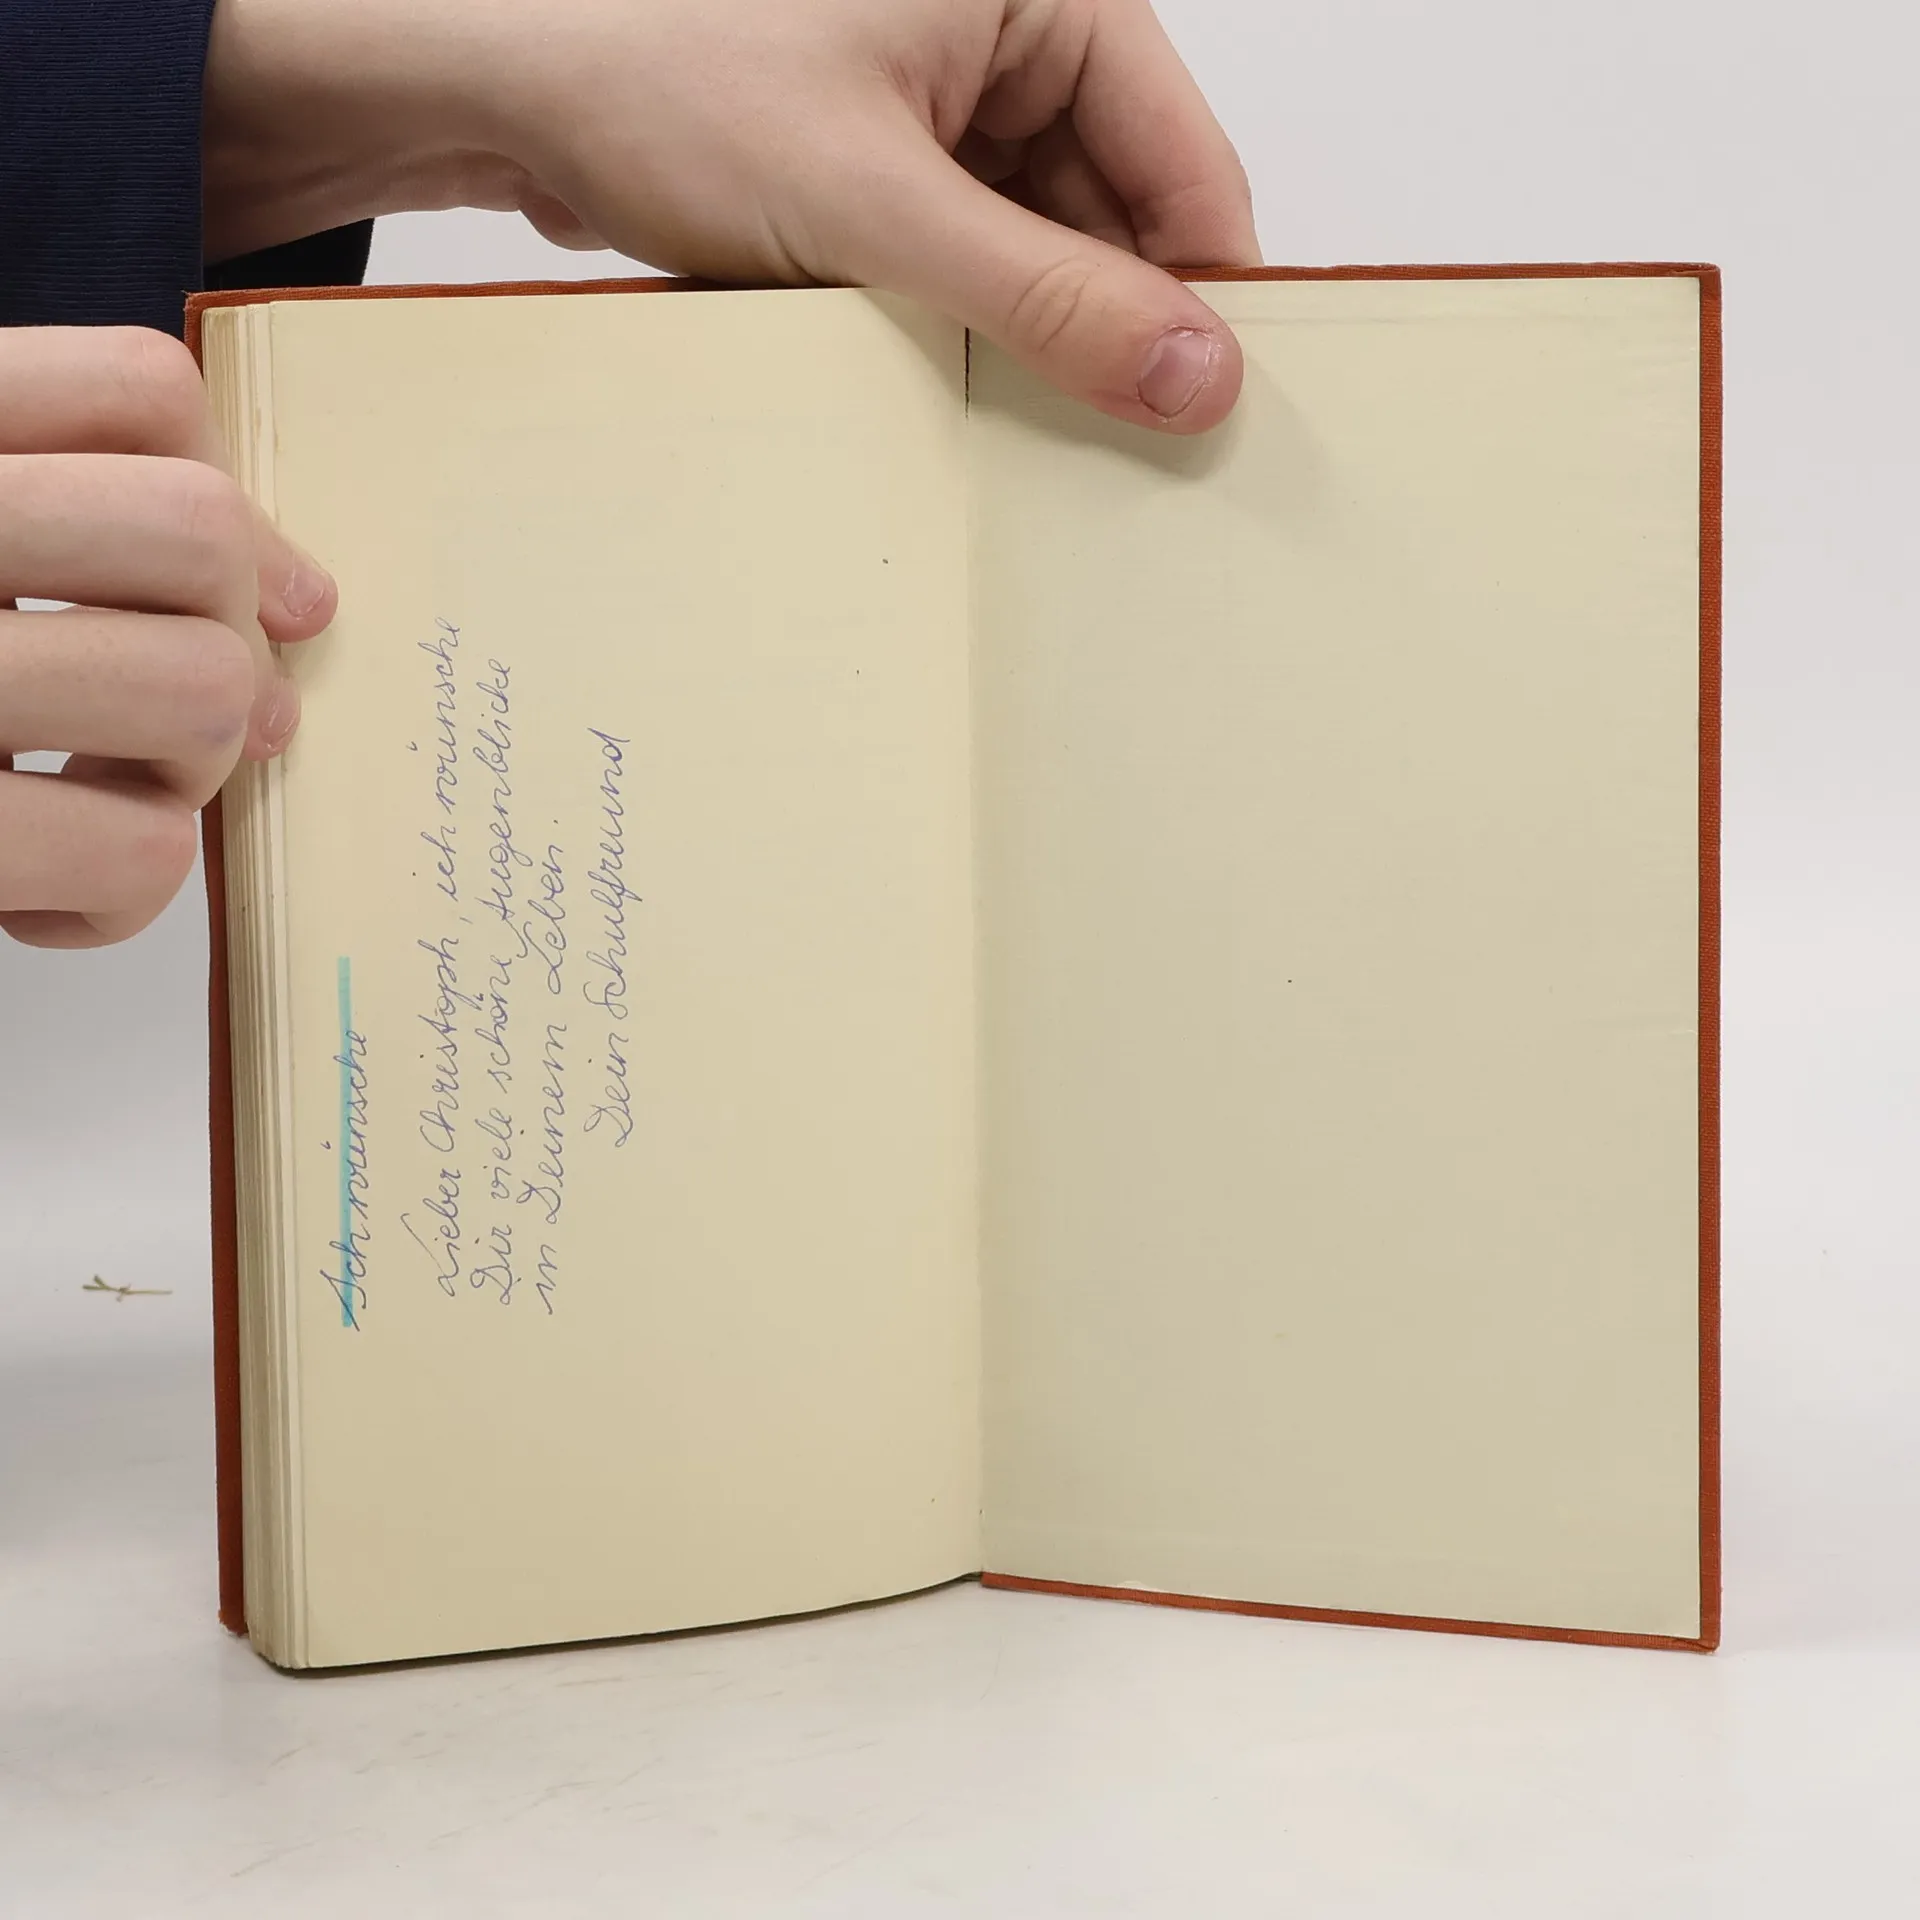 Ich wünsche
Lieber Christoph, ich wünsche
Dir viele schöne Augenblicke
in Deinem Leben.
Dein Schulfreund